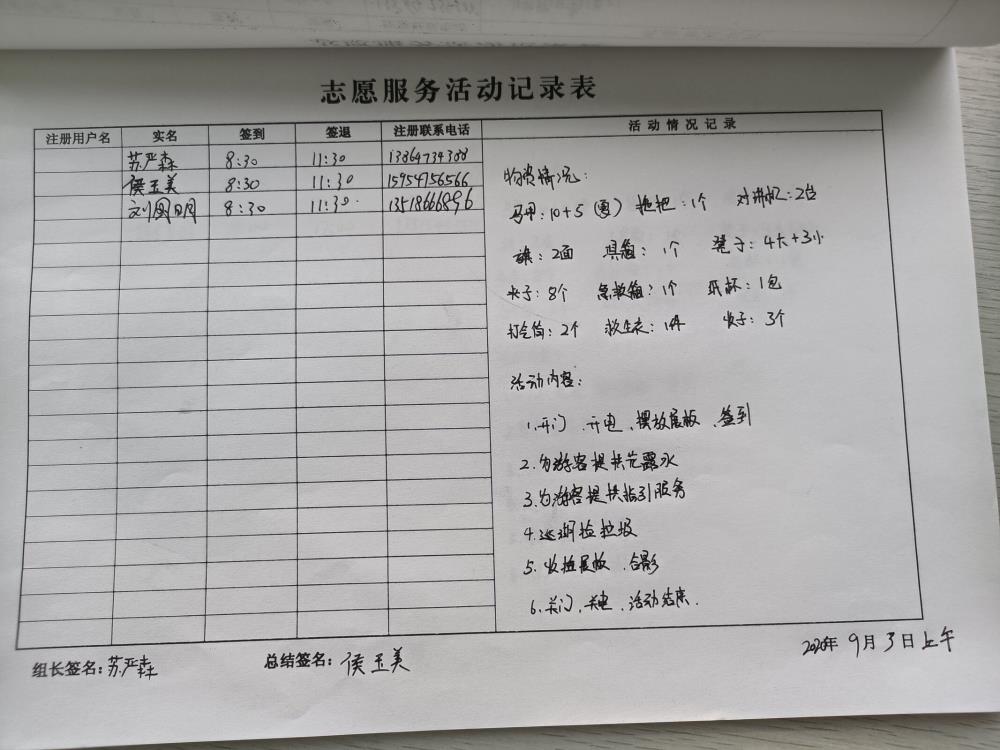 志愿服务活动记录表
注册用户名 实名 签到 签退 注册联系电话 活动情况记录
苏严森 8:30 11:30 13864734388
侯玉美 8:30 11:30 15954756566
刘圆明 8:30 11:30 13518666896
物资情况:
马甲:10+5(围) 拖把:1个 对讲机:2台
旗:2面 工具箱:1个 凳子:4大+3小
夹子:8个 急救箱:1个 纸杯:1包
打气筒:2个 救生衣:1件 叉子:3个
活动内容:
1.开门、开电、摆放展板、签到
2.为游客提供花露水
3.为游客提供指引服务
4.巡湖捡垃圾
5.收拾展板、合影
6.关门、关电、活动结束.
组长签名:苏严森 总结签名:侯玉美
2020年9月3日上午